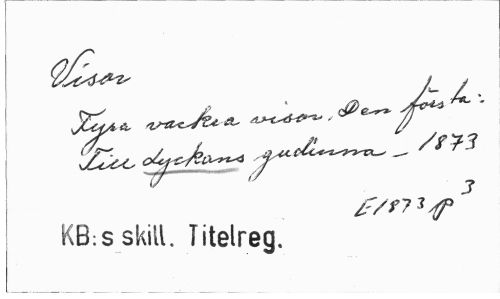 Visor
Fyra vackra visor. Den första:
Till lyckans gudinna – 1873
E1873 p3
KB:s skill. Titelreg.